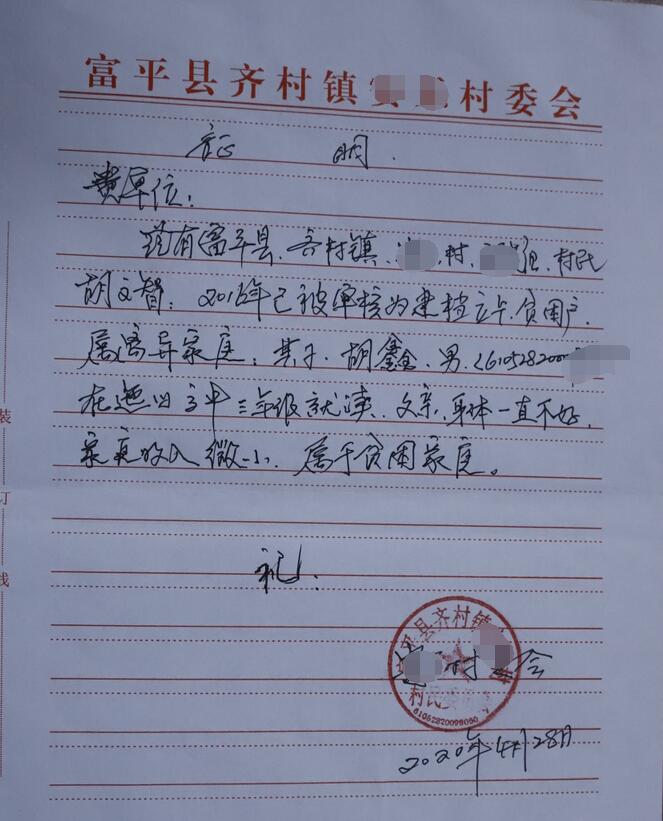 富平县齐村镇 村委会
证 明.
贵单位:
兹有富平县、齐村镇、 村、 组、村民
胡文智:2016年已被审核为建档立卡贫困户.
属离异家庭;其子、胡鑫、男、(6105282000
在迤山高中三年级就读、父亲、身体一直不好、
家庭收入微小、属于贫困家庭。
礼!
平县齐村镇
村 会
村民委
61052820098060
2020年4月28日
装
订
线